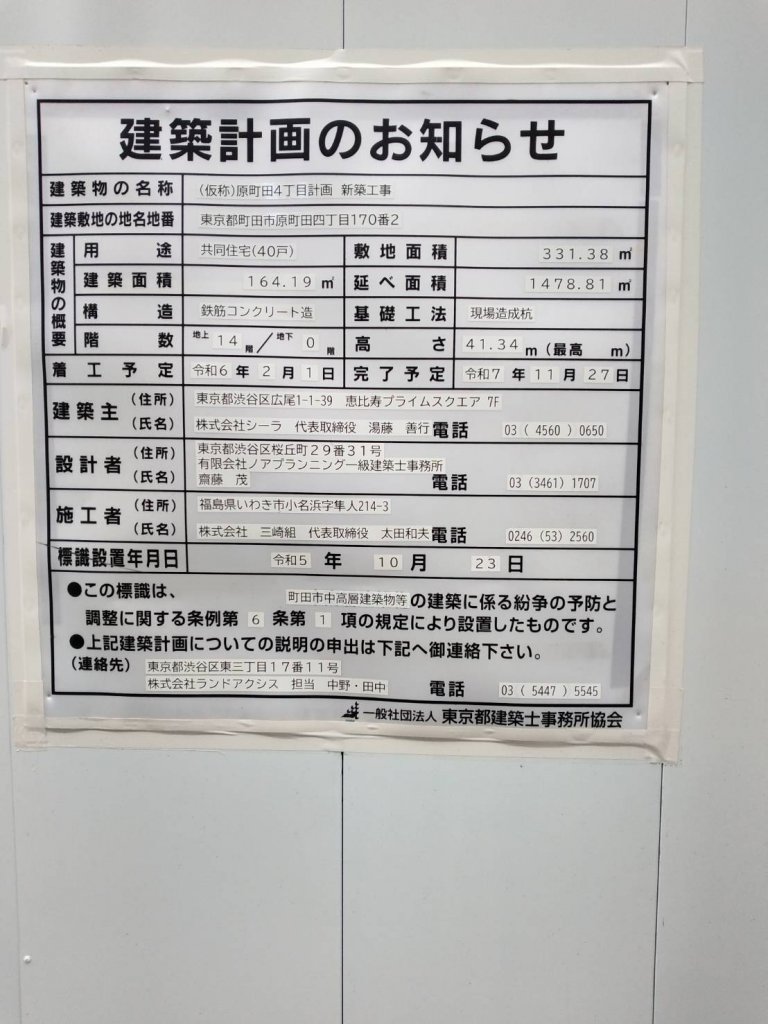 建築計画のお知らせ
建築物の名称 (仮称)原町田4丁目計画 新築工事
建築敷地の地名地番 東京都町田市原町田四丁目170番2
建築物の概要
用途 共同住宅(40戸) 敷地面積 331.38 ㎡
建築面積 164.19 ㎡ 延べ面積 1478.81 ㎡
構造 鉄筋コンクリート造 基礎工法 現場造成杭
階数 地上 14 階/地下 0 階 高さ 41.34 m(最高 m)
着工予定 令和6年2月1日 完了予定 令和7年11月27日
建築主 (住所) 東京都渋谷区広尾1-1-39 恵比寿プライムスクエア 7F
(氏名) 株式会社シーラ 代表取締役 湯藤 善行 電話 03 ( 4560 ) 0650
設計者 (住所) 東京都渋谷区桜丘町29番31号
有限会社ノアプランニング一級建築士事務所
(氏名) 齋藤 茂 電話 03 (3461) 1707
施工者 (住所) 福島県いわき市小名浜字隼人214-3
(氏名) 株式会社 三崎組 代表取締役 太田和夫 電話 0246 (53) 2560
標識設置年月日 令和5 年 10 月 23 日
●この標識は、 町田市中高層建築物等の建築に係る紛争の予防と
調整に関する条例第 6 条第 1 項の規定により設置したものです。
●上記建築計画についての説明の申出は下記へ御連絡下さい。
(連絡先) 東京都渋谷区東三丁目17番11号
株式会社ランドアクシス 担当 中野・田中 電話 03 ( 5447 ) 5545
一般社団法人 東京都建築士事務所協会